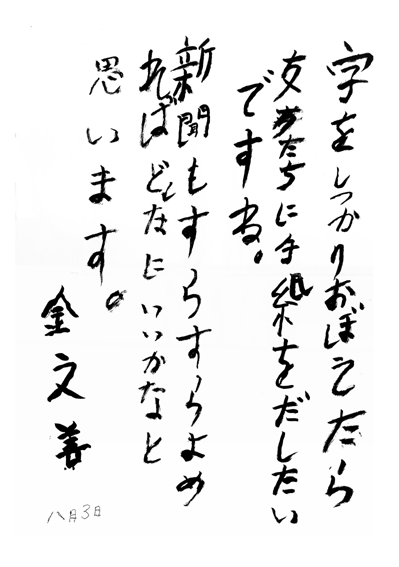 字をしっかりおぼえたら
友だちに手紙をだしたい
ですね。
新聞もすらすらよめ
ればどんなにいいかなと
思います。
金文善
八月3日